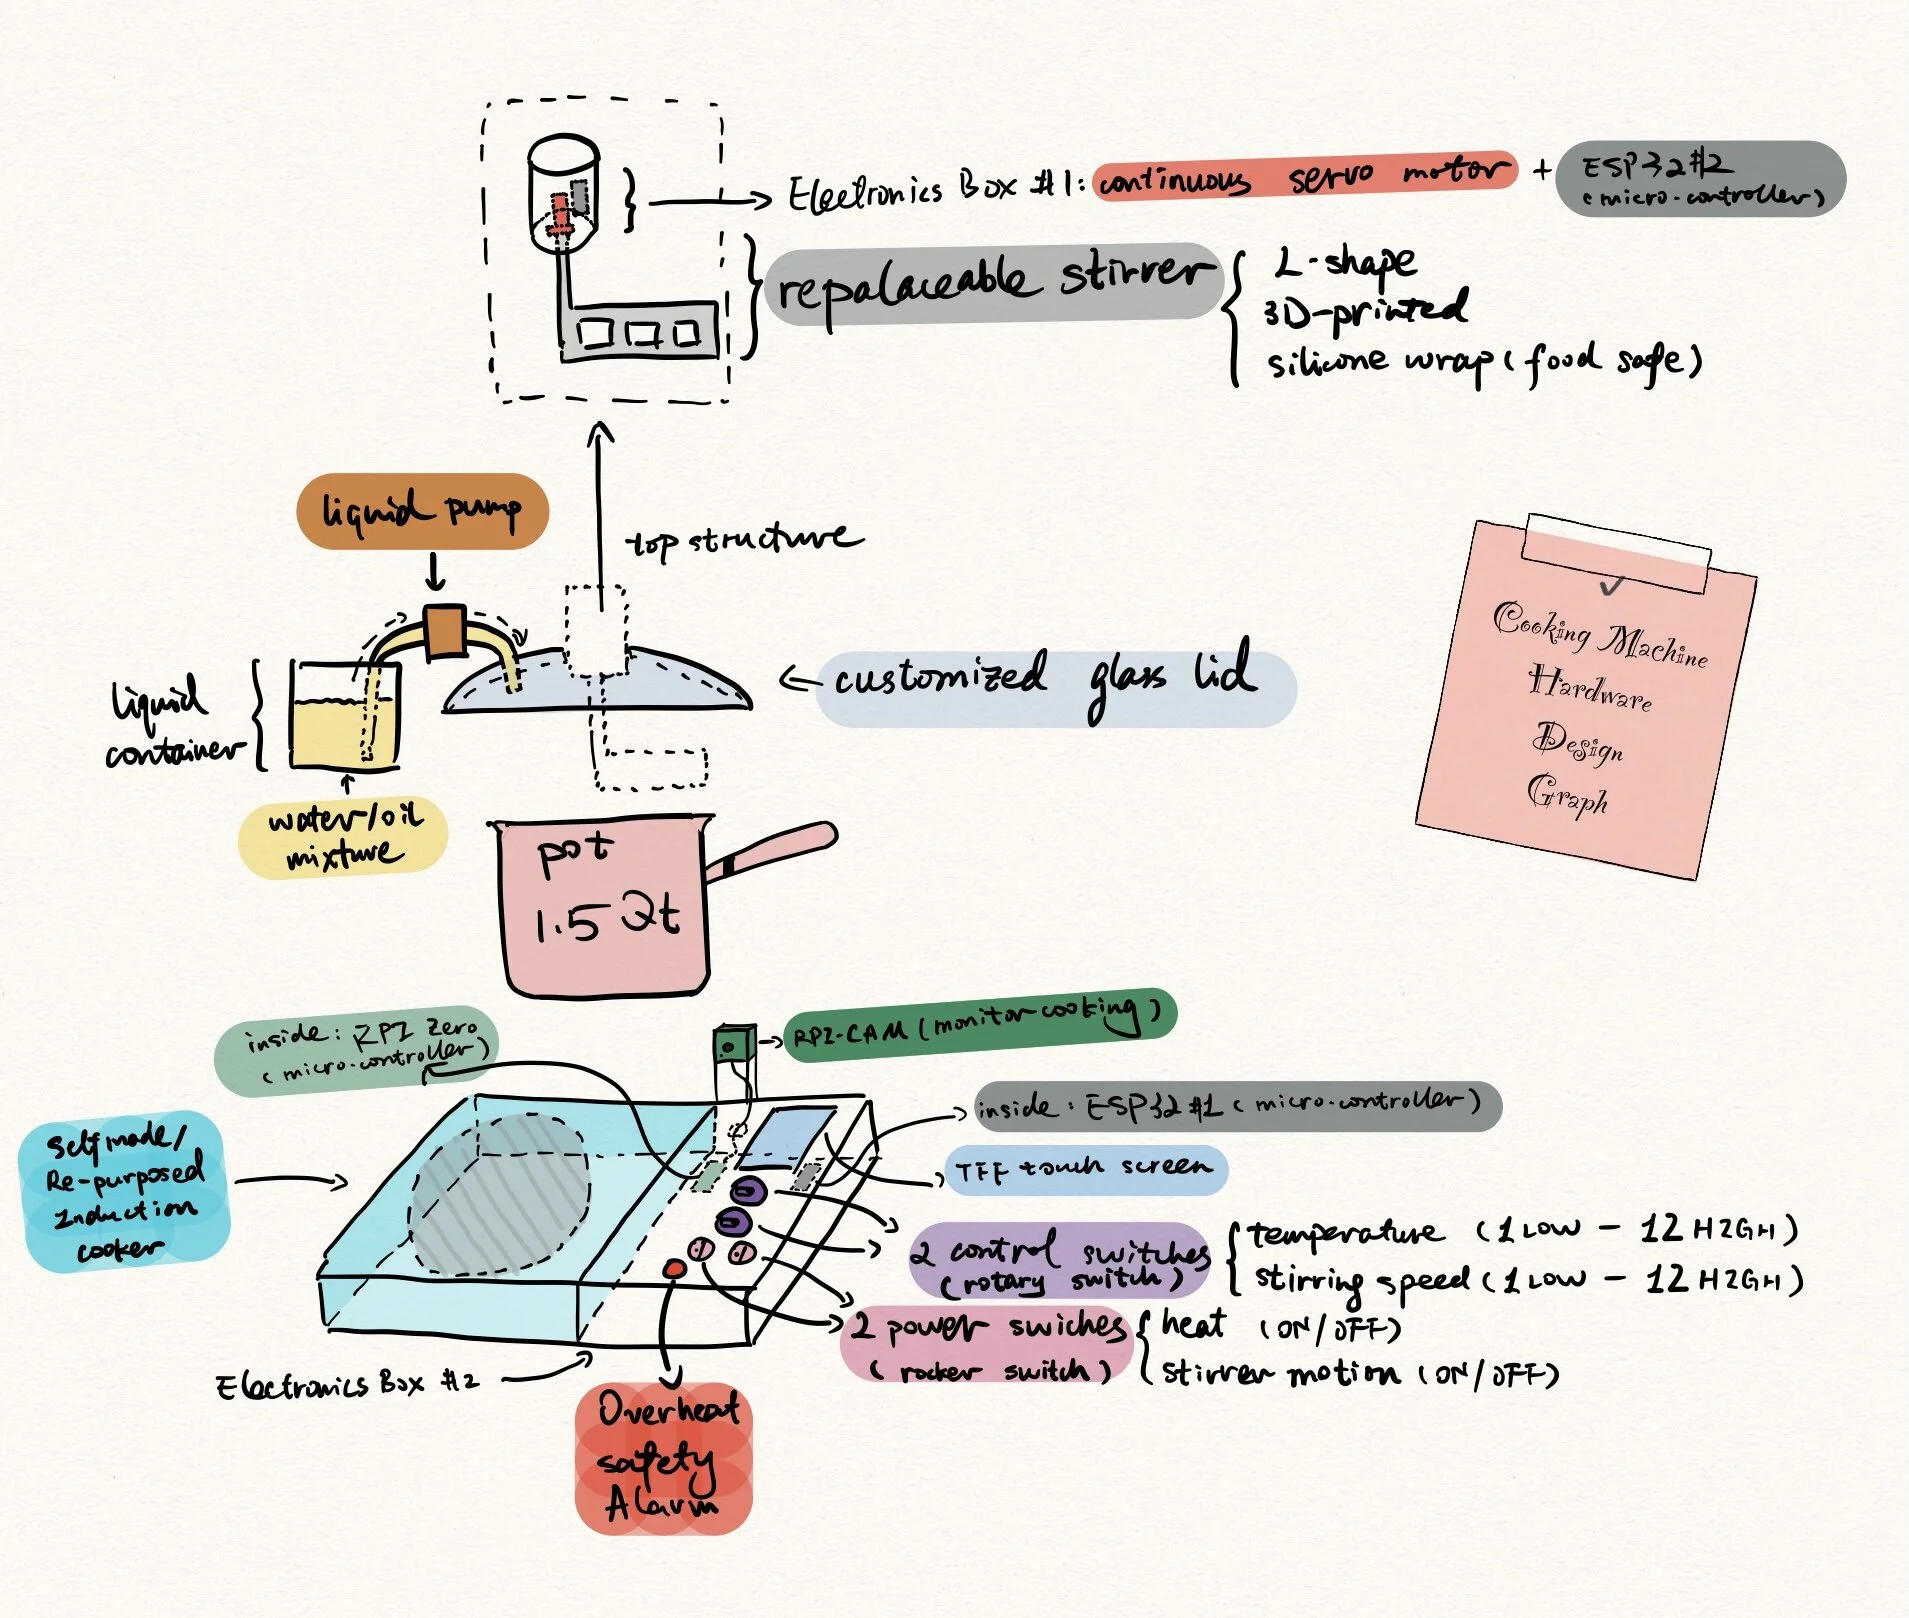 Electronics Box #1: continuous servo motor + ESP32#2
(micro-controller)
repalaceable stirrer
L-shape
3D-printed
silicone wrap (food safe)
liquid pump
top structure
customized glass lid
liquid
container
water/oil
mixture
Cooking Machine
Hardware
Design
Graph
pot
1.5 Qt
inside: RPI Zero
(micro-controller)
RPI-CAM (monitor cooking)
inside: ESP32 #1 (micro-controller)
TFF touch screen
Selfmade/
Re-purposed
Induction
cooker
2 control switches
(rotary switch)
temperature (1 LOW - 12 HIGH)
stirring speed (1 LOW - 12 HIGH)
2 power swiches
(rocker switch)
heat (ON/OFF)
stirrer motion (ON/OFF)
Electronics Box #2
Overheat
safety
Alarm